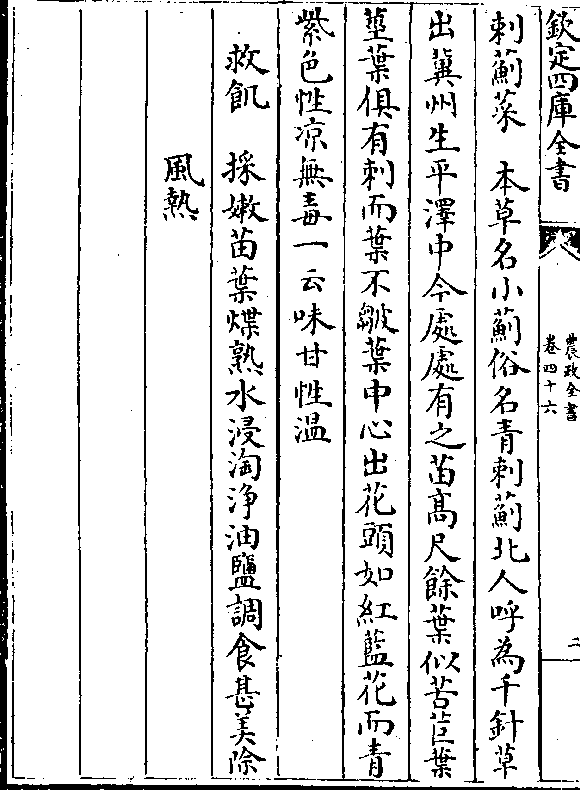 欽定四庫全書
農政全書
卷四十六
二
刺薊菜　本草名小薊俗名青刺薊北人呼為千針草
出冀州生平澤中今處處有之苗髙尺餘葉似苦苣葉
莖葉俱有刺而葉不皺葉中心出花頭如紅藍花而青
紫色性凉無毒一云味甘性温
救飢　採嫩苗葉煠熟水浸淘浄油鹽調食甚美除
風熱